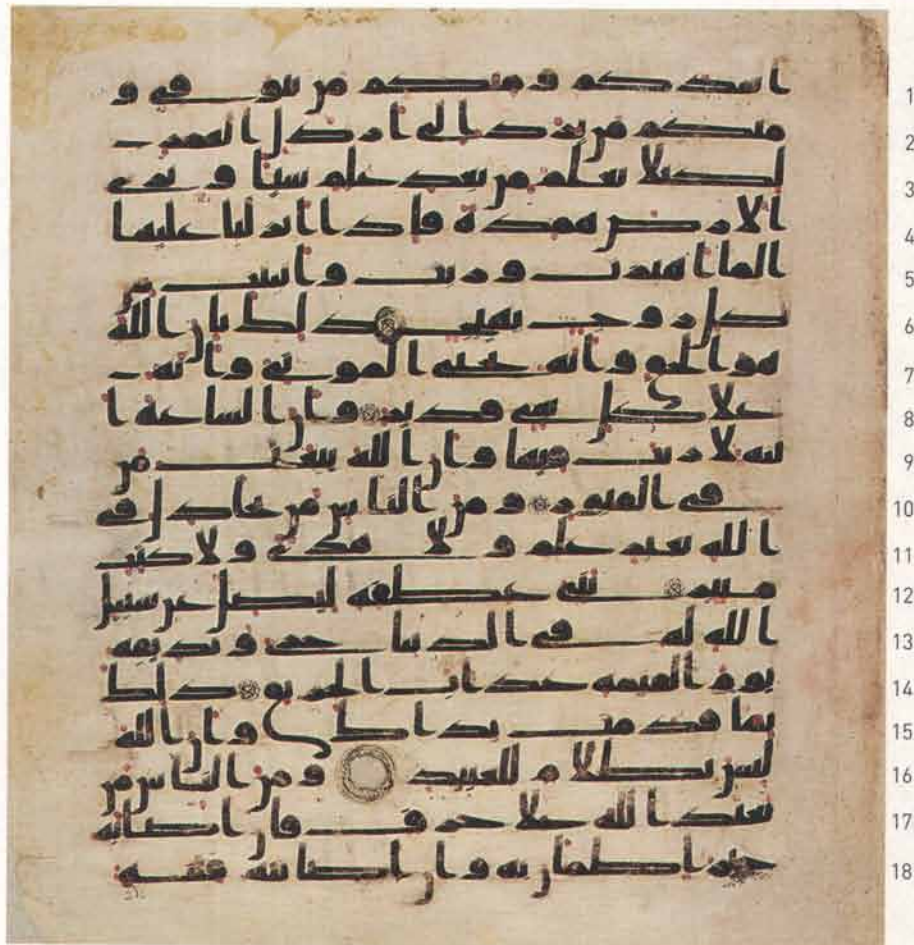 1 اشدكم ومنكم من يتوفى و
2 منكم من يرد الى ارذل العمر
3 لكيلا يعلم من بعد علم شيا وترى
4 الارض همدة فاذا انزلنا عليها
5 الما اهتزت وربت وانبتت من
6 كل زوج بهيج ذلك بان الله
7 هو الحق وانه يحيي الموتى وانه
8 علا كل شي قدير وان الساعة ا
9 تيه لا ريب فيها وان الله يبعث من
10 في القبور ومن الناس من يجادل في
11 الله بغير علم ولا هدى ولا كتب
12 منير ثني عطفه ليضل عن سبيل
13 الله له في الدنيا خزي ونذيقه
14 يوم القيمه عذاب الحريق ذلك
15 بما قدمت يداك وان الله
16 ليس بظلام للعبيد ومن الناس من
17 يعبد الله علا حرف فان اصابه
18 خير اطمان به وان اصابته فتنه